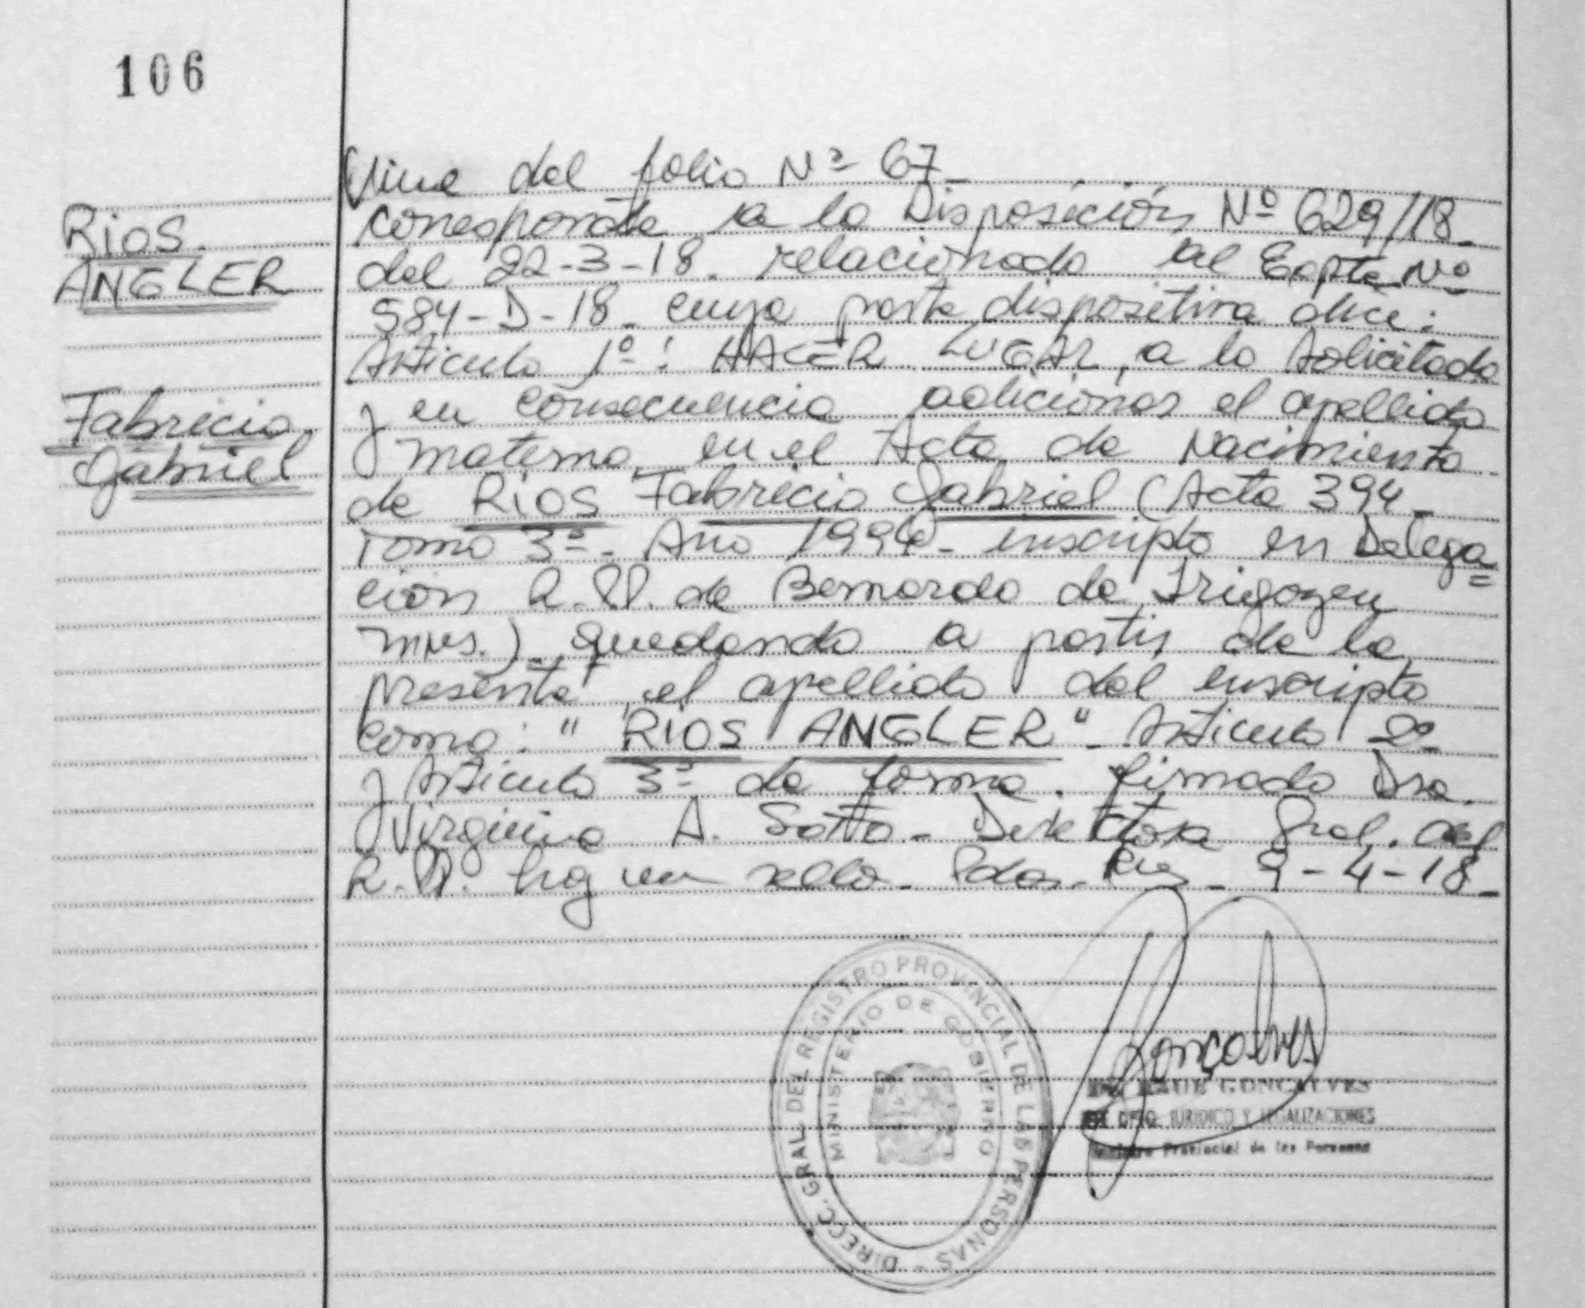 106
RIOS
ANGLER
Fabricio
Gabriel
Viene del folio Nº 67_
corresponde a la Disposición Nº 629/18_
del 22-3-18. relacionado al Expte Nº
584-D-18_ cuya parte dispositiva dice:
Artículo 1º: HACER LUGAR a lo solicitado
y en consecuencia adicionar el apellido
materno en el Acta de Nacimiento
de RIOS Fabricio Gabriel (Acta 394_
Tomo 3º_ Año 1994_ inscripto en Delega=
ción R.P. de Bernardo de Irigoyen
Mnes.) quedando a partir de la
presente el apellido del inscripto
como: "RIOS ANGLER"_ Artículo 2º
y Artículo 3º de forma. firmado Dra.
Virginia A. Sotto_ Directora Gral. del
R.P. hay un sello_ Pdas. _ 9-4-18_
DIRECC. GRAL DEL REGISTRO PROVINCIAL DE LAS PERSONAS -
MINISTERIO DE GOBIERNO
Gonçalves
GONCALVES
DPTO. JURIDICO Y LEGALIZACIONES
Registro Provincial de las Personas